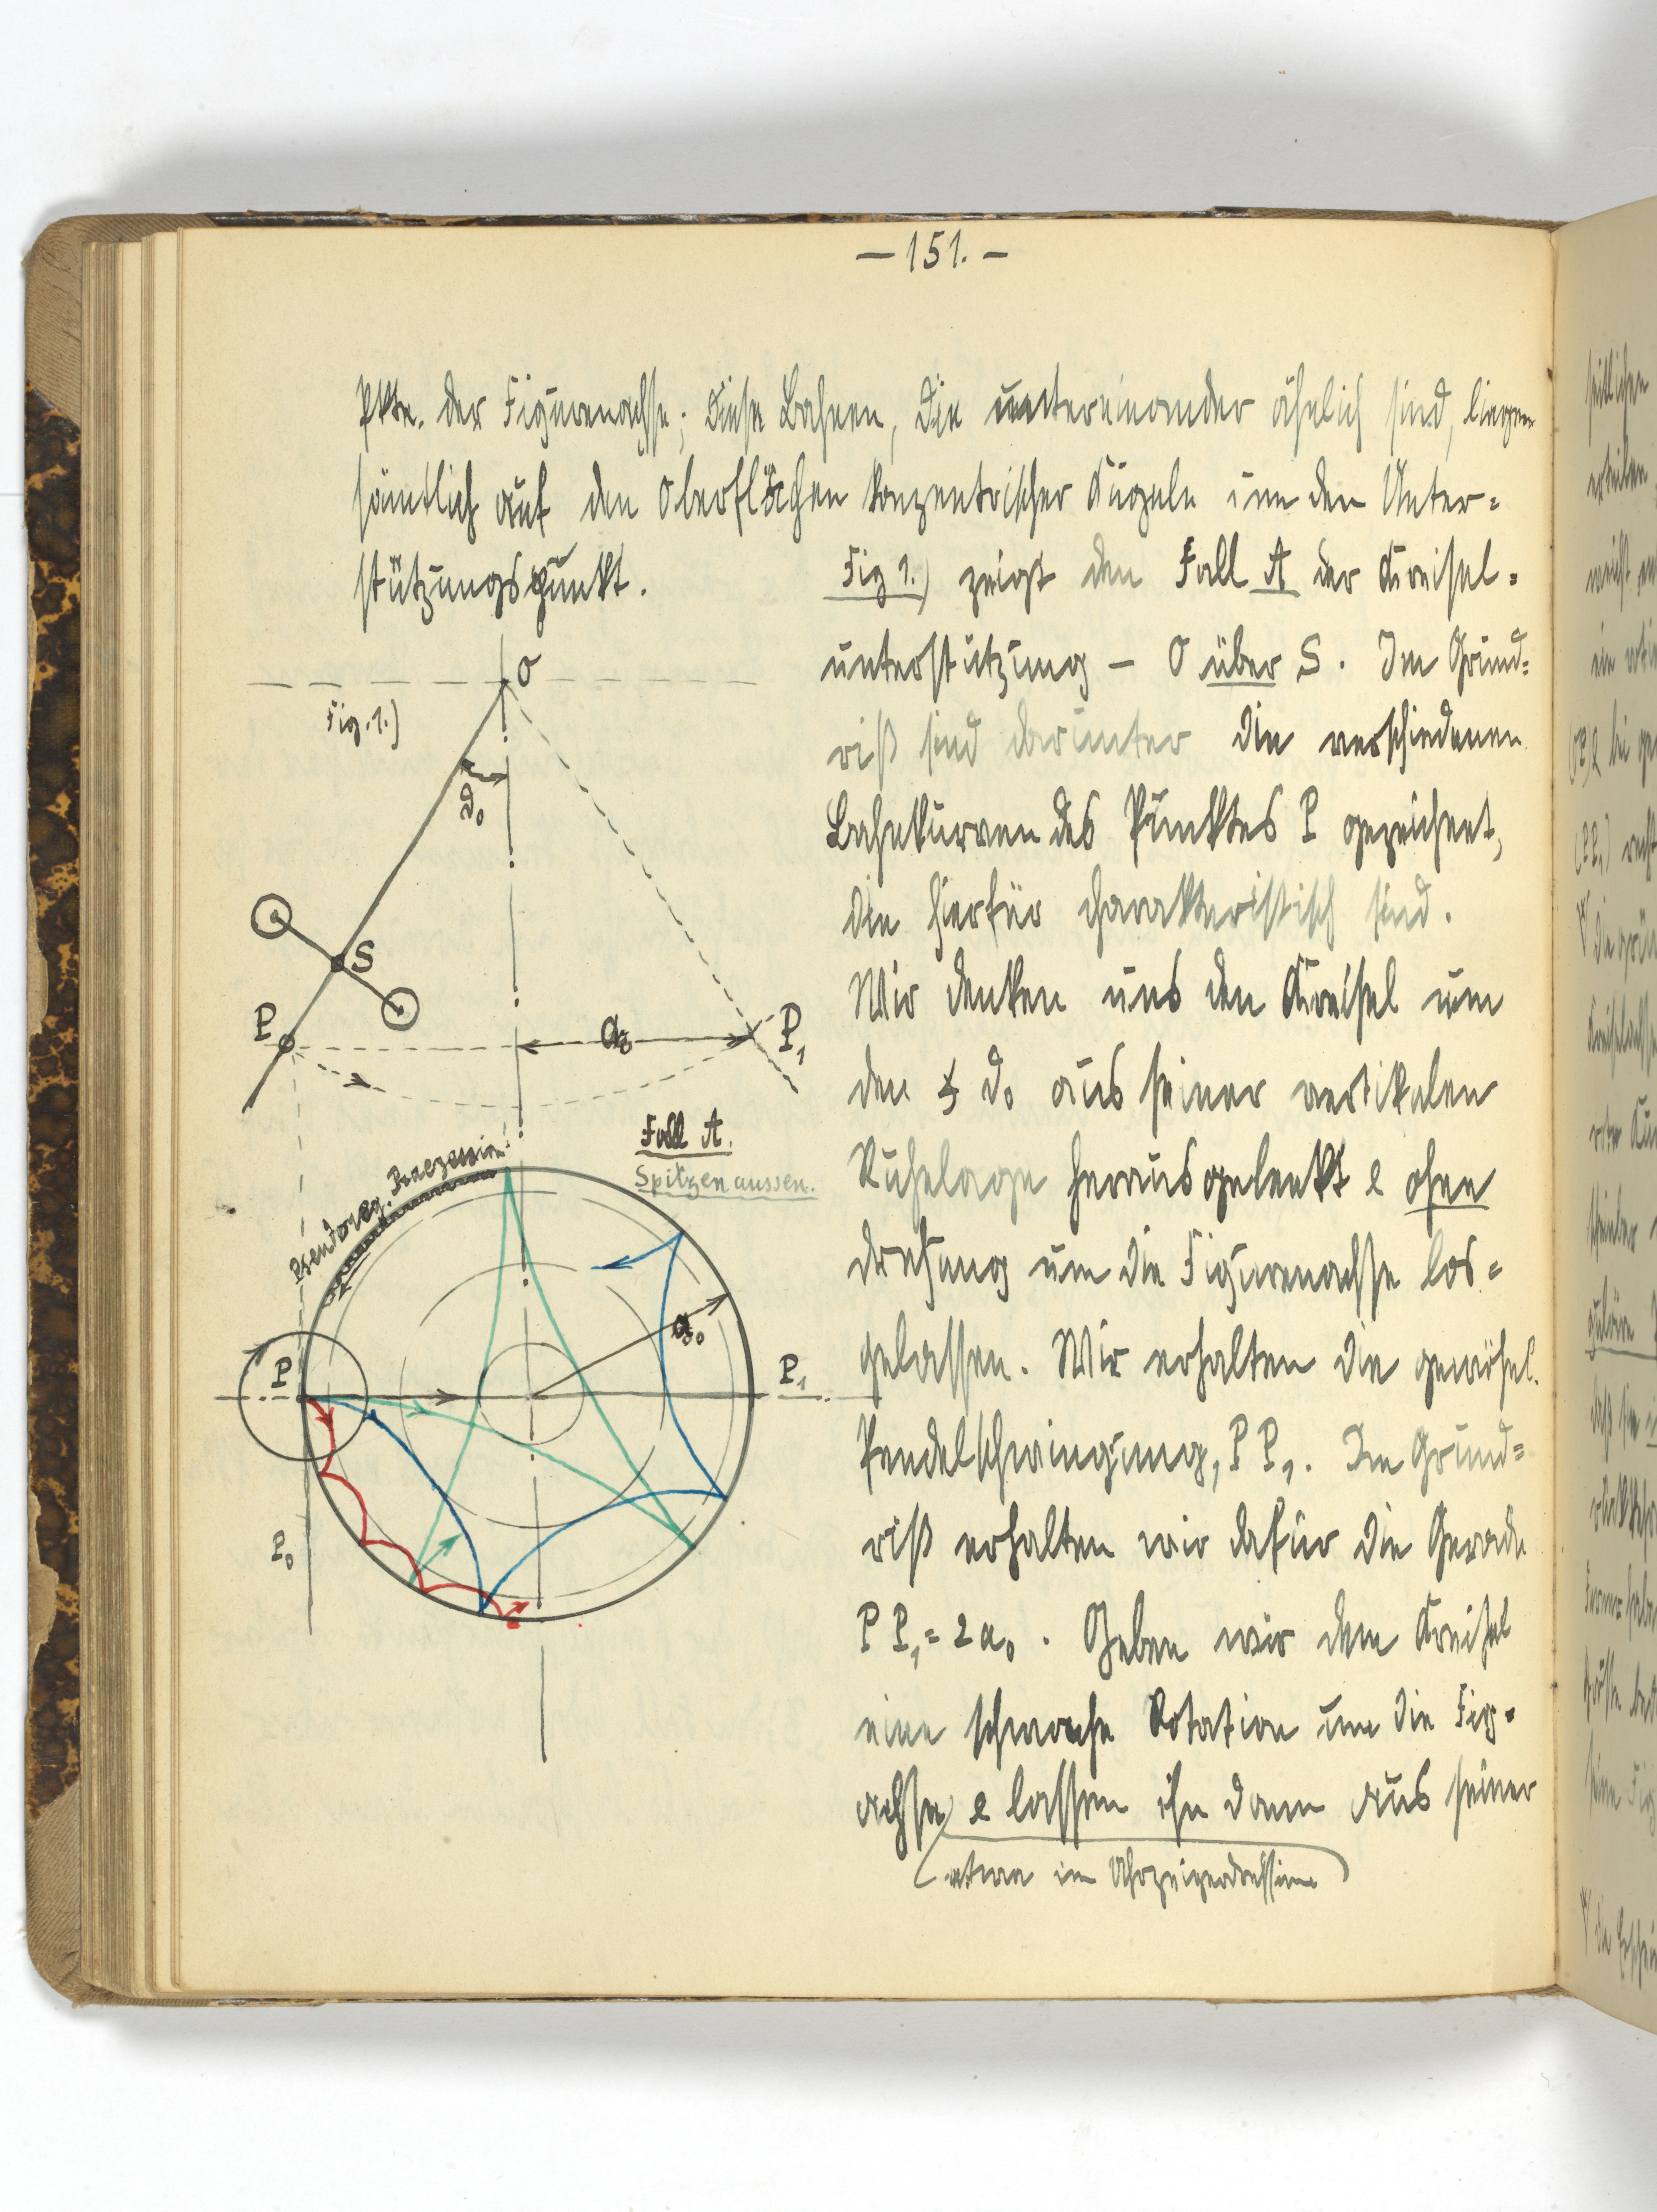 — 151. —
Pkte. der Figurenachse; diese Bahnen, die untereinander ähnlich sind, liegen
sämtlich auf den Oberflächen konzentrischer Kugeln um den Unter=
stützungspunkt.
Fig 1.) zeigt den Fall A der Kreisel=
unterstützung – O über S. Im Grund=
riß sind darunter die verschiedenen
Bahnkurven des Punktes P gezeichnet,
die hierfür charakteristisch sind.
Wir denken uns den Kreisel um
den ∢ ϑ₀ aus seiner vertikalen
Ruhelage herausgelenkt & ohne
Drehung um die Figurenachse los=
gelassen. Wir erhalten die gewöhnl.
Pendelschwingung, P P₁. Im Grund=
riß erhalten wir dafür die Gerade
P P₁ = 2a₀. Geben wir dem Kreisel
eine schwache Rotation um die Fig.
achse & lassen ihn dann aus seiner
(etwa im Uhrzeigerdrehsinne)
O
Fig. 1.)
ϑ₀
S
P
a₀
P₁
Fall A.
Spitzen aussen.
Pseudoreg. Praezession
a₀
P
P₁
P₀